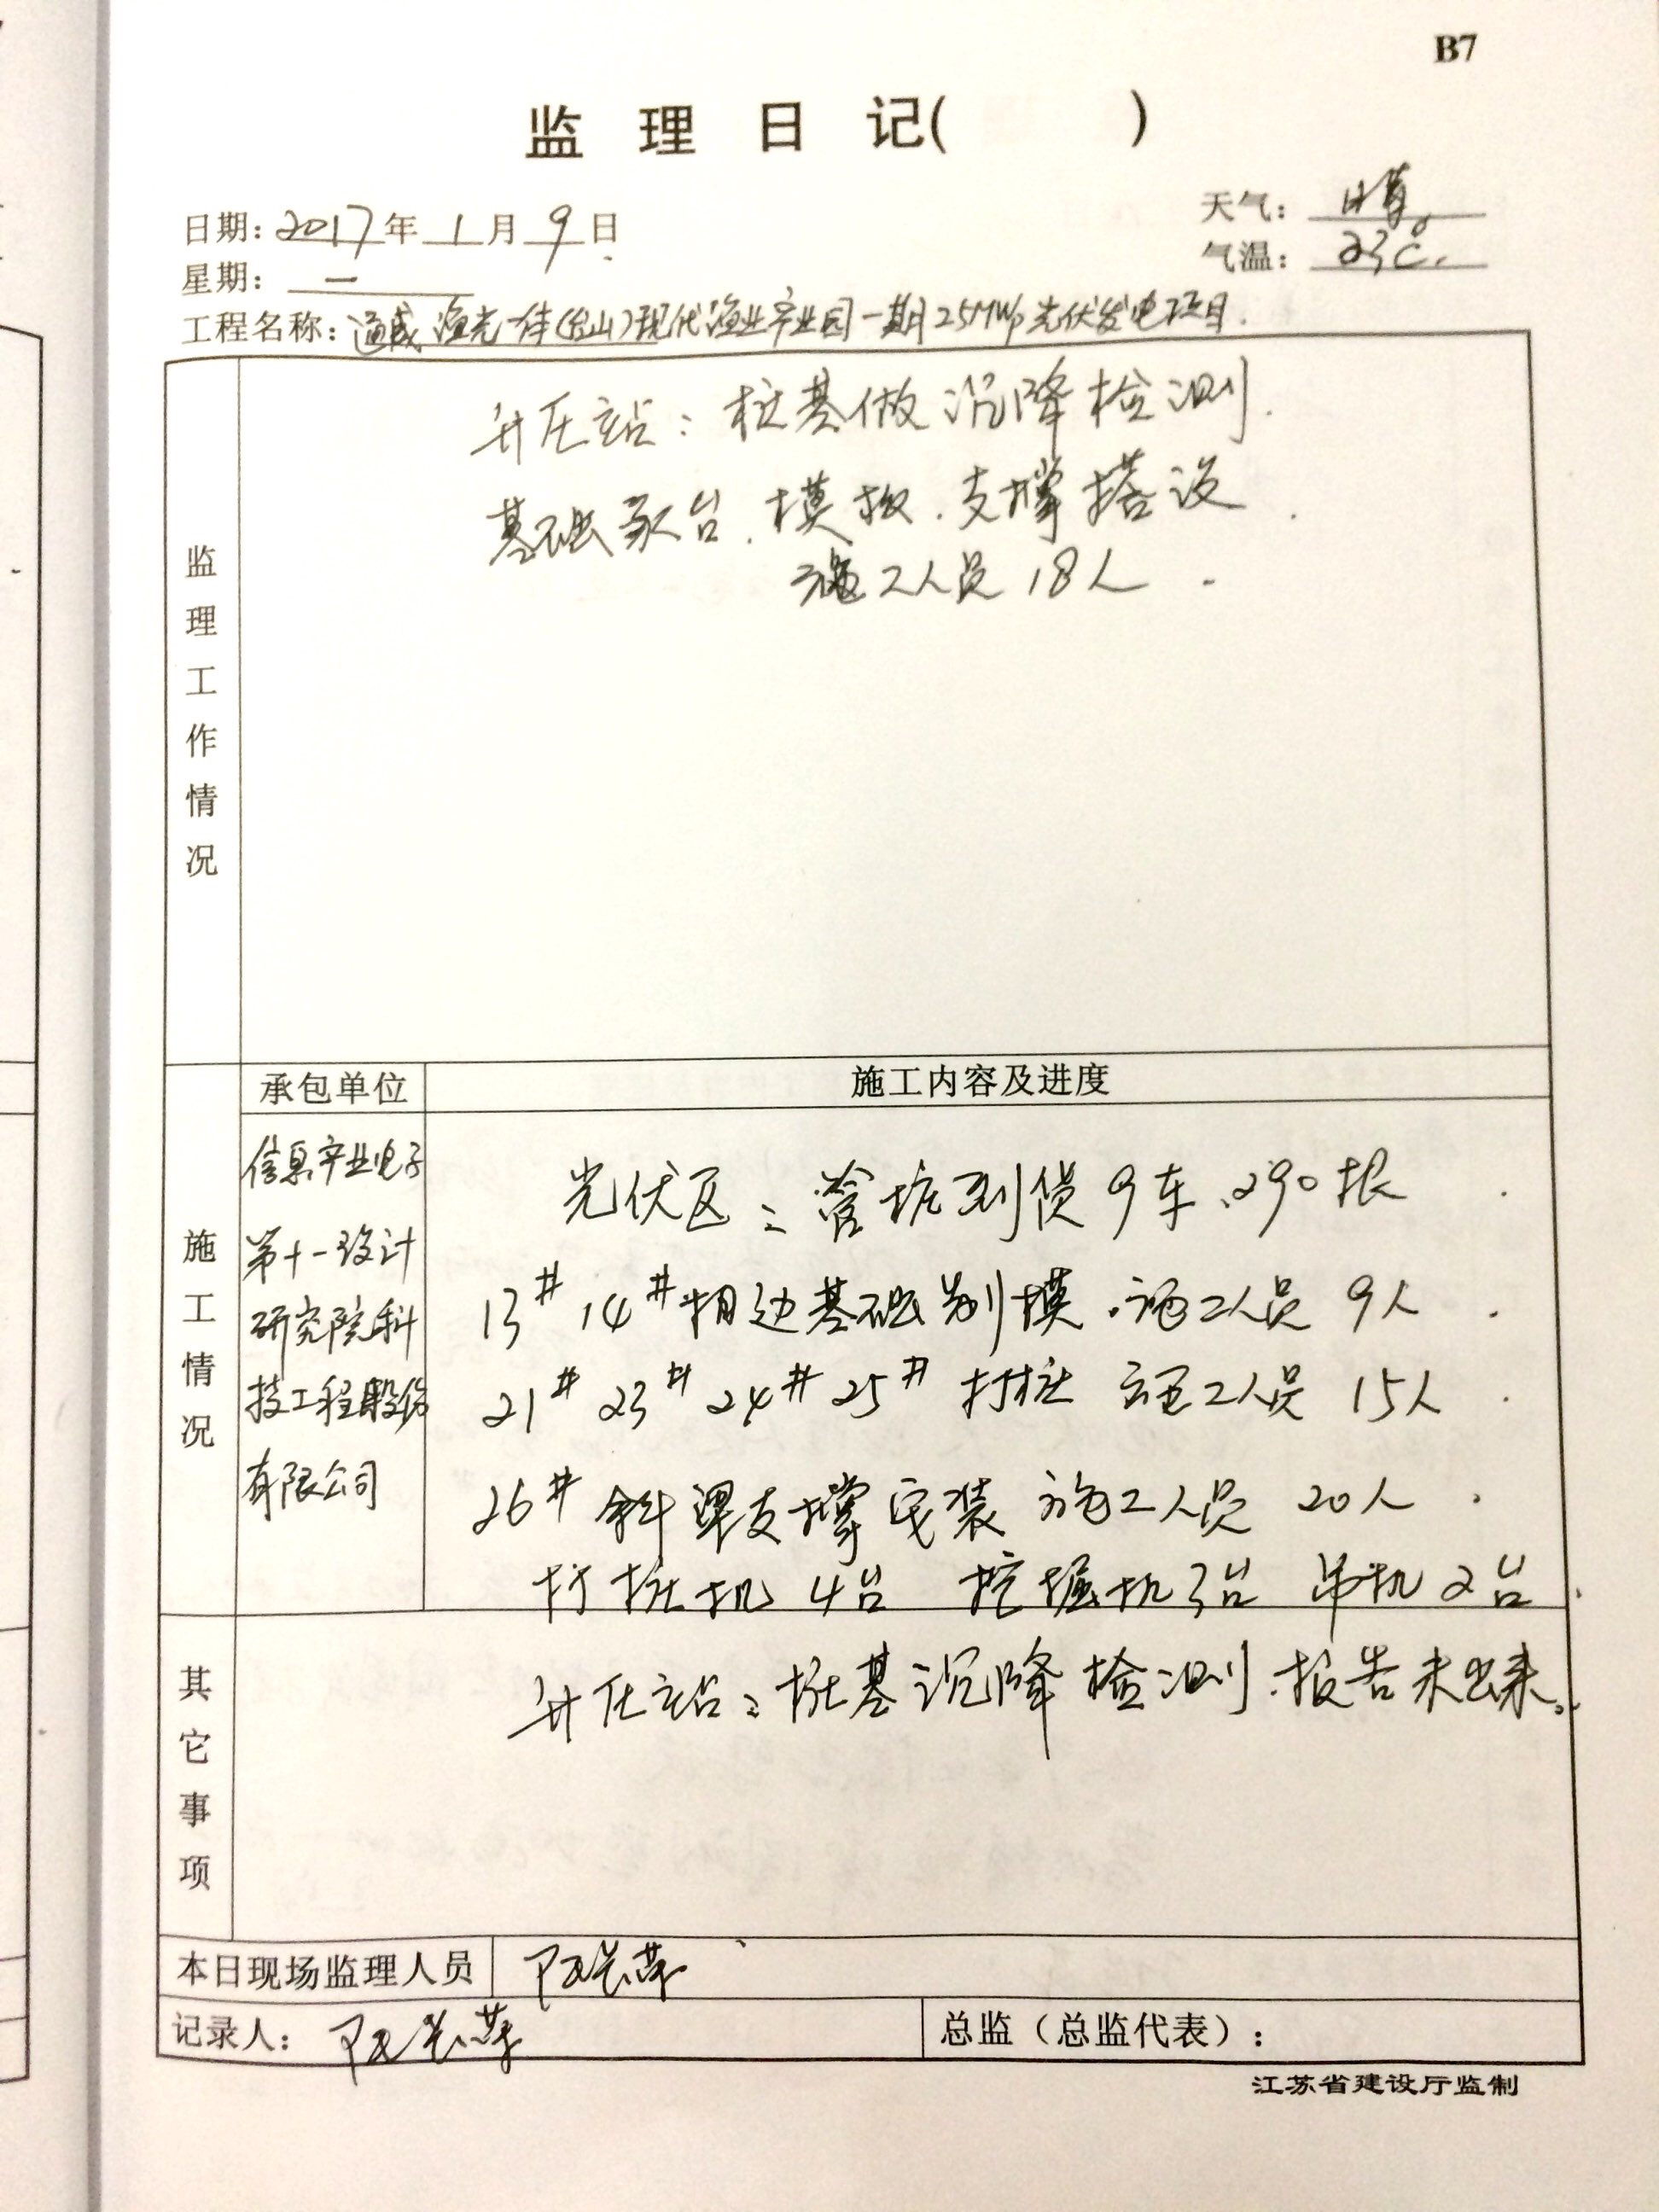 B7
监理日记( )
日期: 2017年1月9日
天气: 晴。
星期: 一
气温: 23℃.
工程名称: 通威渔光一体(台山)现代渔业产业园一期25MWp光伏发电项目.
监理工作情况
升压站: 桩基做沉降检测.
基础承台.模板.支撑搭设.
施工人员18人.
施工情况
承包单位
施工内容及进度
信息产业电子
第十一设计
研究院科
技工程股份
有限公司
光伏区: 管桩到货9车、290根.
13# 14# 箱边基础 模.施工人员 9人.
21# 23# 24# 25# 打桩 施工人员 15人.
26# 斜梁支撑安装 施工人员 20人.
打桩机 4台 挖掘机3台 吊机2台.
其它事项
升压站: 桩基沉降检测.报告未出来。
本日现场监理人员
记录人:
总监(总监代表):
江苏省建设厅监制